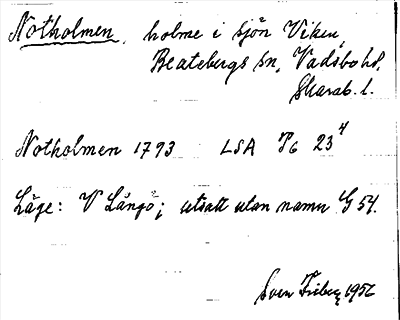 Notholmen, holme i sjön Viken,
Beatebergs sn, Vadsbo hd,
Skarab. l.
Notholmen 1793 LSA P6 23⁴
Läge: V Långö; utsatt utan namn G 54.
Sven Fribeg 1956